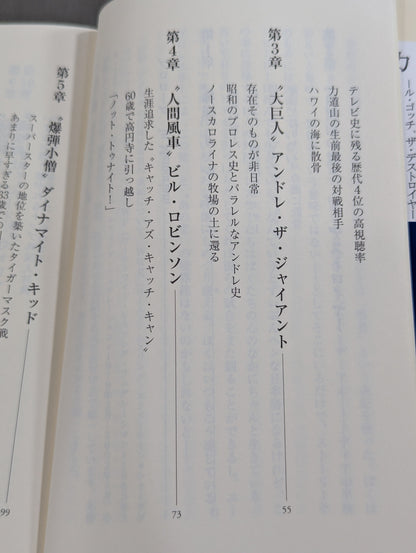 テレビ史に残る歴代4位の高視聴率
力道山の生前最後の対戦相手
ハワイの海に散骨
第3章 〝大巨人〟アンドレ・ザ・ジャイアント 55
存在そのものが非日常
昭和のプロレス史とパラレルなアンドレ史
ノースカロライナの牧場の土に還る
第4章 〝人間風車〟ビル・ロビンソン 73
生涯追求した〝キャッチ・アズ・キャッチ・キャン〟
60歳で高円寺に引っ越し
「ノット・トゥナイト！」
第5章 〝爆弾小僧〟ダイナマイト・キッド 99
スーパースターの地位を築いたタイガーマスク戦
あまりに早すぎる33歳での